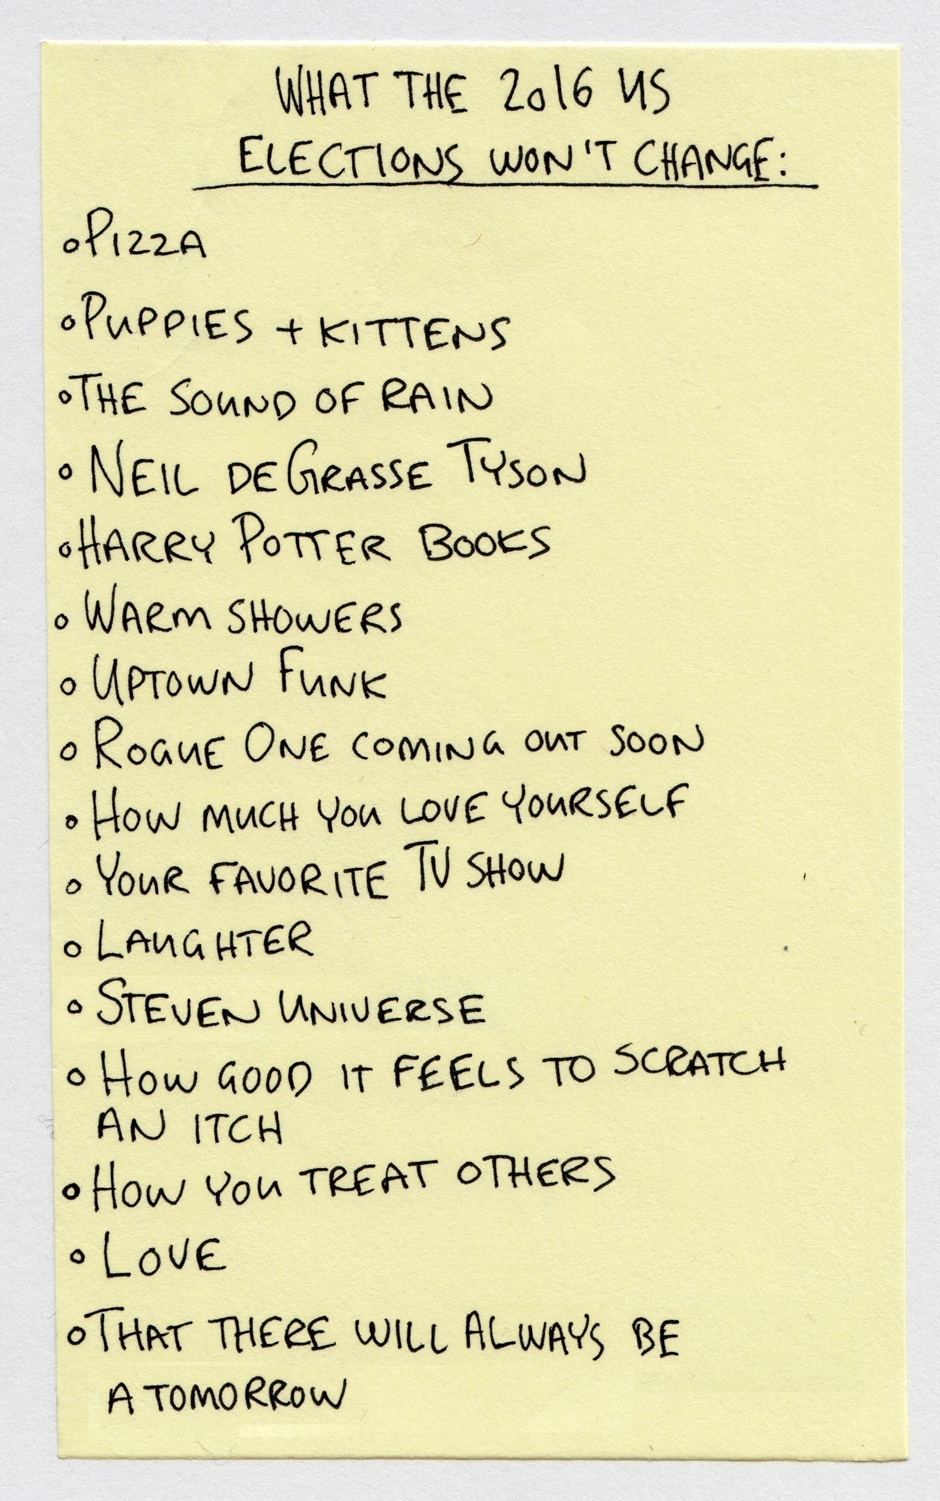 WHAT THE 2016 US
ELECTIONS WON'T CHANGE:
○ PIZZA
○ PUPPIES + KITTENS
○ THE SOUND OF RAIN
○ NEIL DEGRASSE TYSON
○ HARRY POTTER BOOKS
○ WARM SHOWERS
○ UPTOWN FUNK
○ ROGUE ONE COMING OUT SOON
○ HOW MUCH YOU LOVE YOURSELF
○ YOUR FAVORITE TV SHOW
○ LAUGHTER
○ STEVEN UNIVERSE
○ HOW GOOD IT FEELS TO SCRATCH
AN ITCH
○ HOW YOU TREAT OTHERS
○ LOVE
○ THAT THERE WILL ALWAYS BE
A TOMORROW